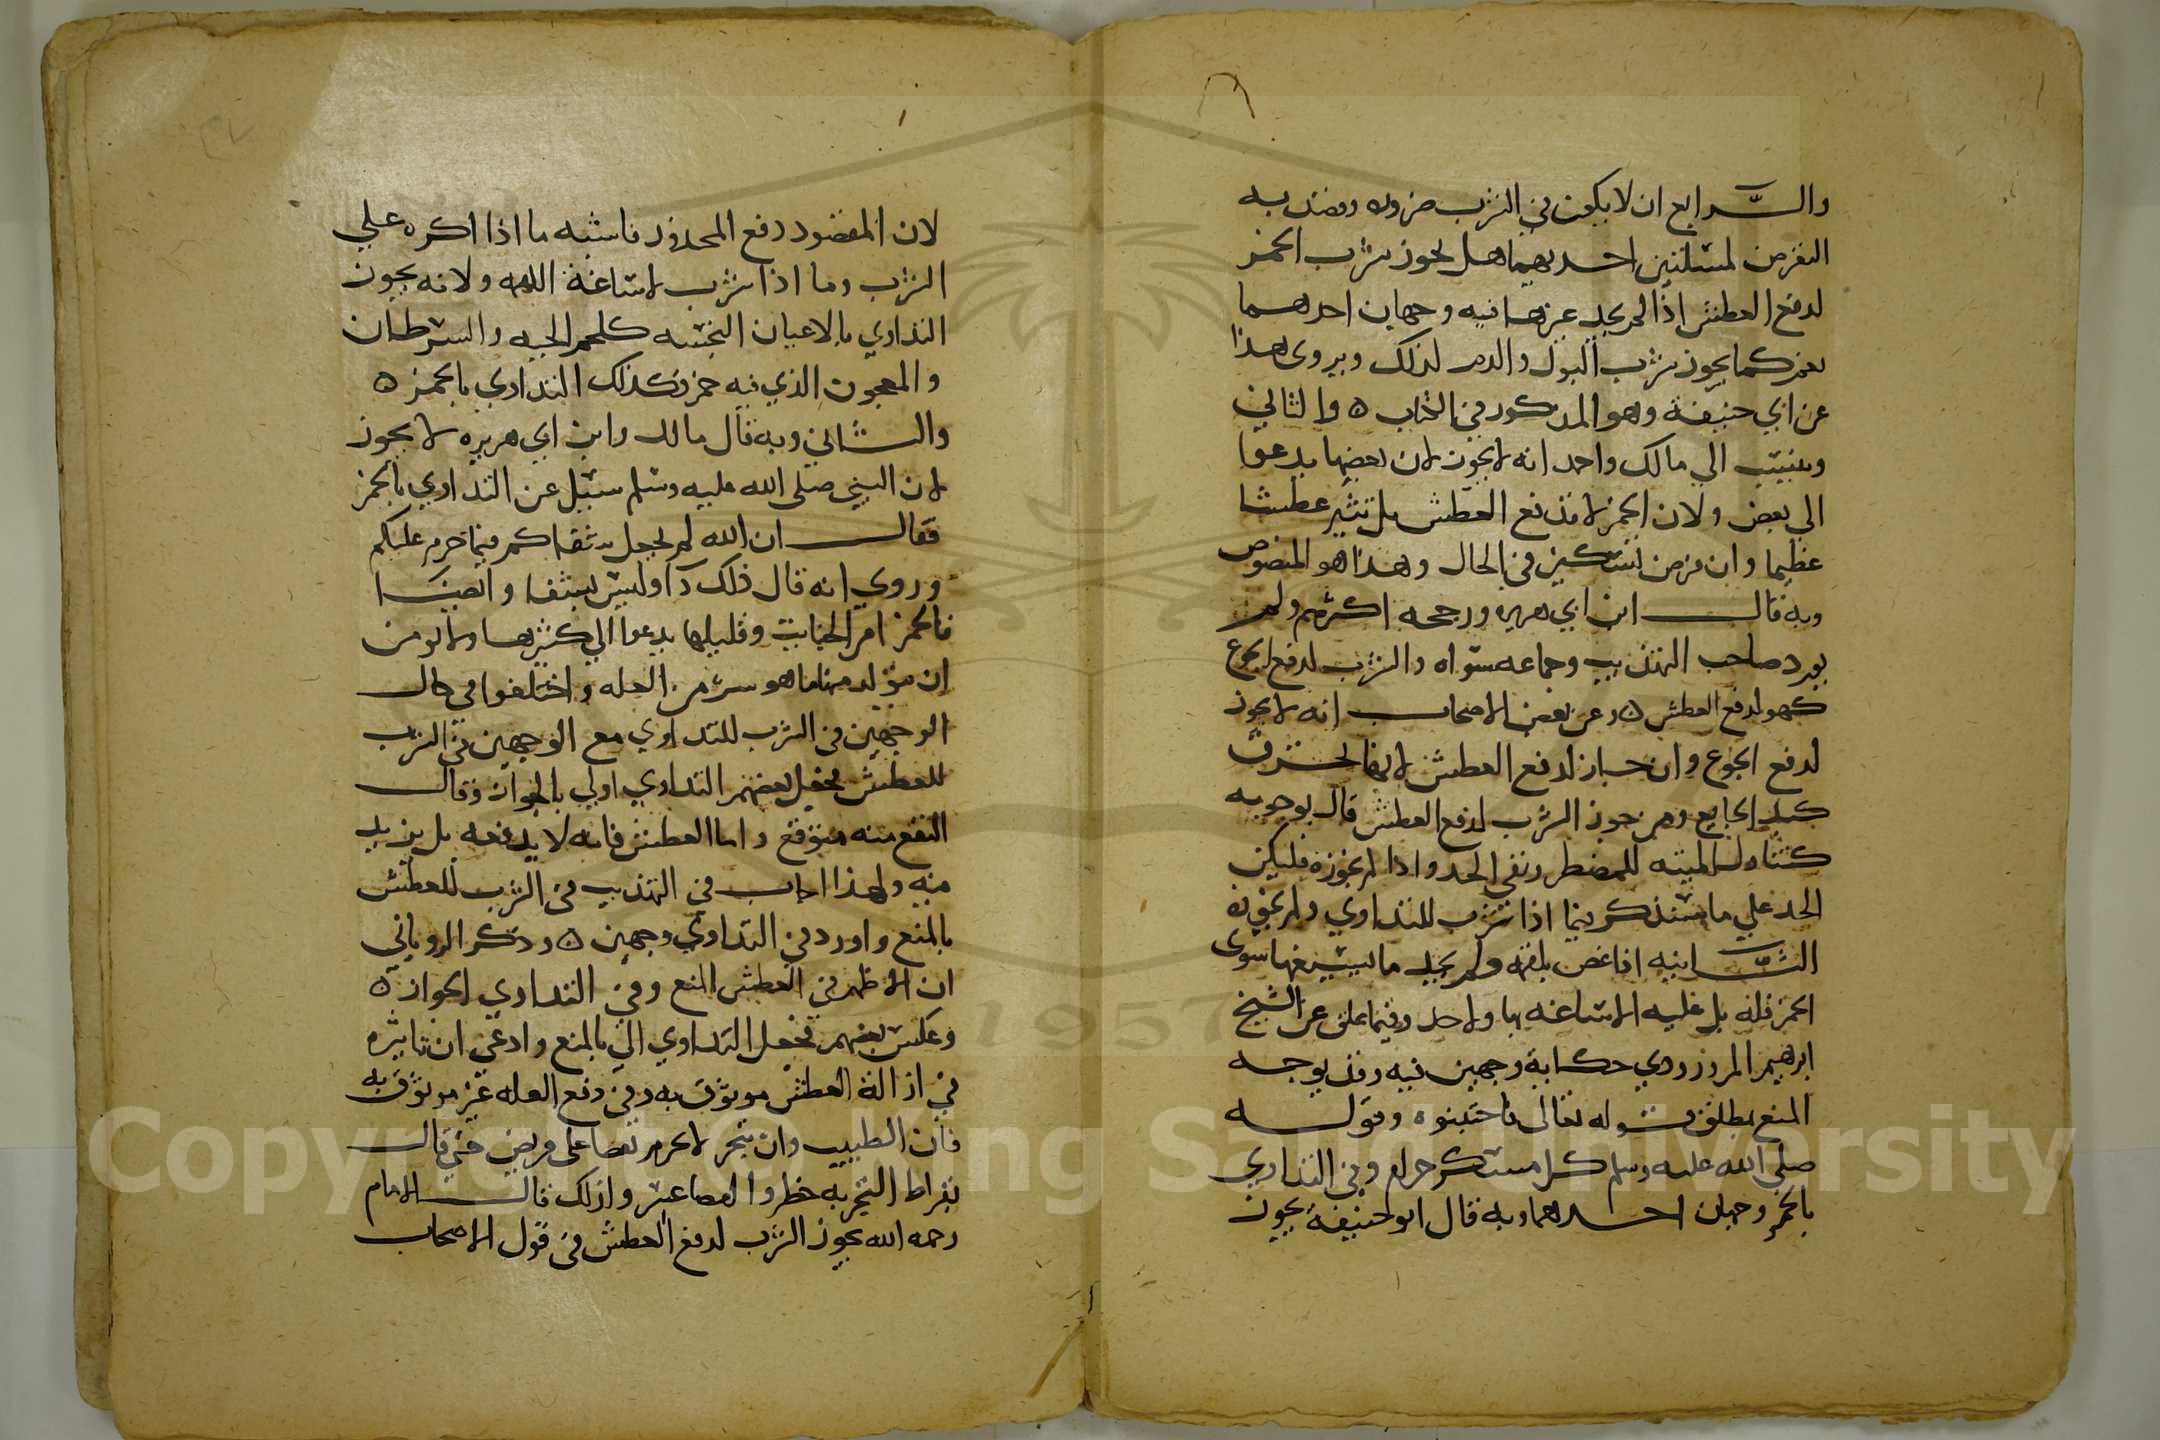 والرابع ان لا يكون في الشرب ضرورة وقصد به
الغرض لمسئلتين احديهما هل يجوز شرب الخمز
لدفع العطش اذا لم يجد غيرها فيه وجهان احدهما
نعم كما يجوز شرب البول والدم لذلك ويروى هذا
عن ابي حنيفة وهو المذكور في الكتاب ه والثاني
وينسب الي مالك واحمد انه لا يجوز لان بعضها يدعوا
الي بعض ولان الخمر لا تدفع العطش بل تثير عطشا
عظيما وان فرض تسكين في الحال وهذا هو المنصوص
وبه قال ابن ابي هريره ورجحه اكثرهم ولم
يورد صاحب التهذيب وجماعه سواه والشرب لدفع الجوع
كهو لدفع العطش ه وعن بعض الاصحاب انه لا يجوز
لدفع الجوع وان جاز لدفع العطش لانها تحرق
كبد الجايع ومن جوز الشرب لدفع العطش قال بوجوبه
كتناول الميته للمضطر ونفي الحد واذا لم نجوزه فليكن
الحد علي ما سنذكر فيما اذا شرب للتداوي ولم نجوزه
الثانيه اذا غص بلقمه ولم يجد ما يسيغها سوى
الخمر فله بل عليه الاساغه بها ولا حد وفيما علق عن الشيخ
ابرهيم المروزروذي حكاية وجهين فيه وقد يوجه
المنع بمطلق قوله تعالى فاجتنبوه وقوله
صلى الله عليه وسلم كل مسكر حرام وفي التداوي
بالخمر وجهان احدهما وبه قال ابو حنيفة يجوز
لان المقصود دفع المحذور فاشبه ما اذا اكره علي
الشرب وما اذا شرب لاساغة اللقمه ولانه يجوز
التداوي بالاعيان النجسه كلحم الحيه والسرطان
والمعجون الذي فيه خمر فكذلك التداوي بالخمز ه
والثاني وبه قال مالك وابن ابي هريره لا يجوز
لان النبي صلى الله عليه وسلم سئل عن التداوي بالخمز
فقال ان الله لم يجعل شفاكم فيما حرم عليكم
وروي انه قال ذلك دآ وليس بشفا وايضا
فالخمز ام الخبايث وقليلها يدعوا الي كثيرها ولا يومن
ان يتولد منها ما هو شر من العله واختلفوا في حال
الوجهين في الشرب للتداوي مع الوجهين في الشرب
للعطش فجعل بعضهم التداوي اولي بالجواز وقال
النفع منه متوقع واما العطش فانه لا يدفعه بل يزيد
فيه ولهذا اجاب في التهذيب في الشرب للعطش
بالمنع واورد في التداوي وجهين ه وذكر الروياني
ان الاظهر في العطش المنع وفي التداوي الجواز ه
وعكس بعضهم فجعل التداوي الي بالمنع وادعي ان تاثيره
في ازالة العطش موثوق به وفي دفع العله غير موثوق به
فان الطبيب وان تبحر لا يجزم بقضا على مريض حتي قال
بقراط التجربه خطر والقضا عسر ولذلك قال الامام
رحمه الله يجوز الشرب لدفع العطش في قول الاصحاب
Copyright © King Saud University
1957